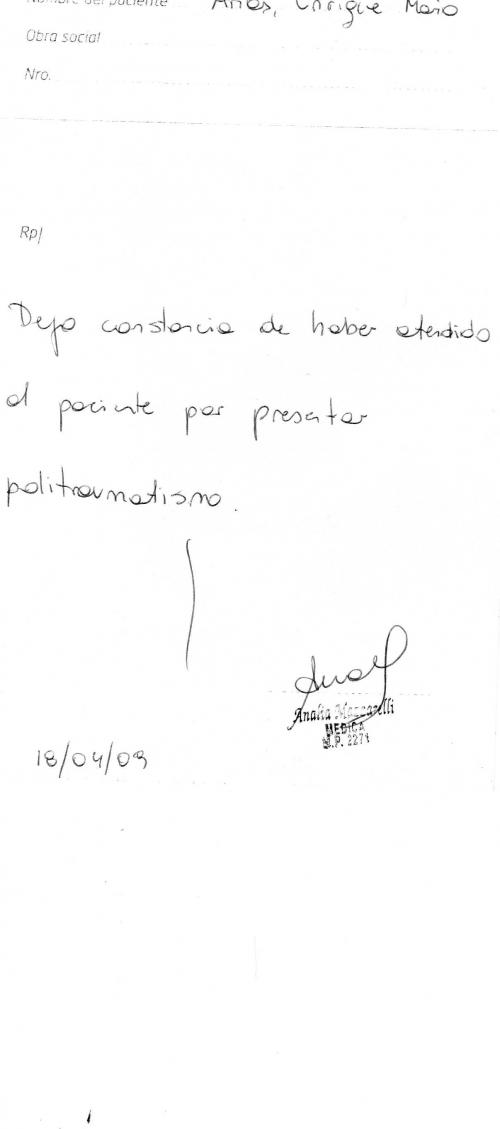 Nombre del paciente Arias, Enrique Mario
Obra social
Nro.
Rp/
Dejo constancia de haber atendido
al paciente por presentar
politraumatismo.
Analia Mazzarelli
MEDICA
M.P. 2271
18/04/09